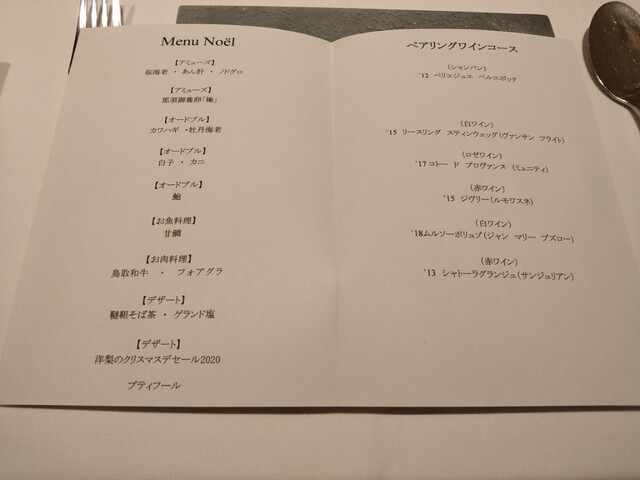 Menu Noël
【アミューズ】
桜海老 ・ あん肝 ・ ノドグロ
【アミューズ】
那須御養卵「極」
【オードブル】
カワハギ ・牡丹海老
【オードブル】
白子 ・ カニ
【オードブル】
鮑
【お魚料理】
甘鯛
【お肉料理】
鳥取和牛 ・ フォアグラ
【デザート】
韃靼そば茶 ・ ゲランド塩
【デザート】
洋梨のクリスマスデセール2020
プティフール
ペアリングワインコース
（シャンパン）
'12 ペリエジュエ ベルエポック
（白ワイン）
'15 リースリング スティンウェッグ（ヴァンサン フライト）
（ロゼワイン）
'17コトー ド プロヴァンス （ミュニティ）
（赤ワイン）
'15 ジヴリー（ルモワスネ）
（白ワイン）
'18ムルソーポリュゾ（ジャン マリー ブズロー）
（赤ワイン）
'13 シャトーラグランジュ（サンジュリアン）